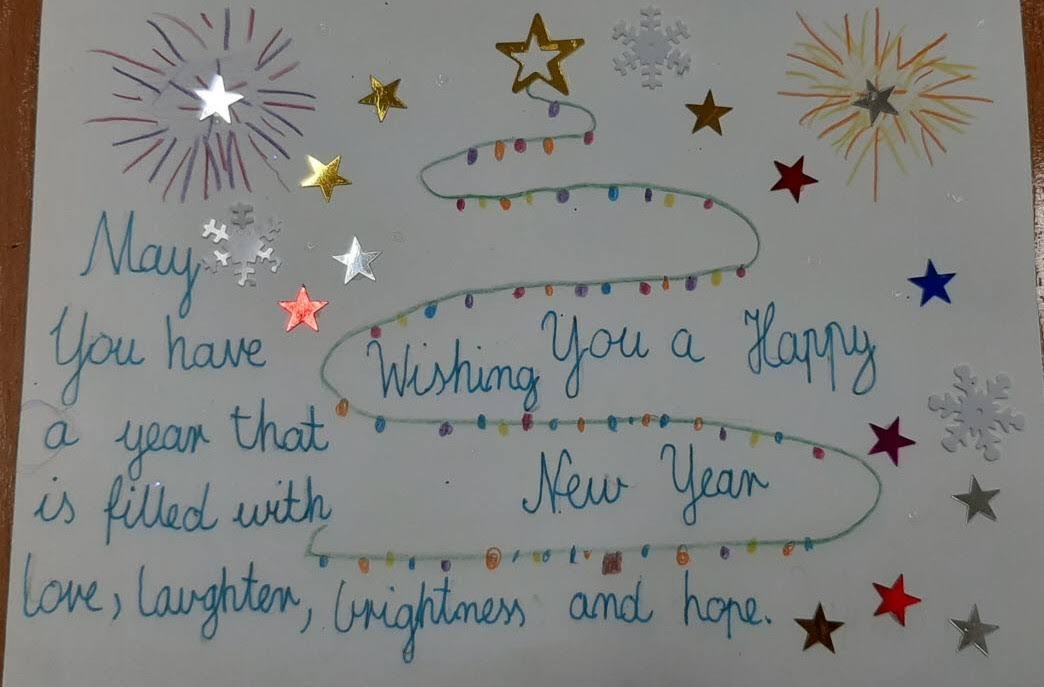 May
You have
a year that
is filled with
love, laughter, brightness and hope.
Wishing You a Happy
New Year